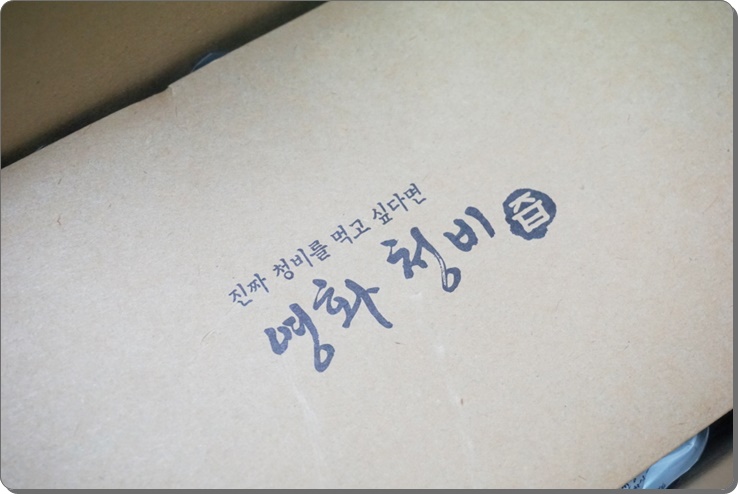 진짜 청비를 먹고 싶다면
영화 청비 즙